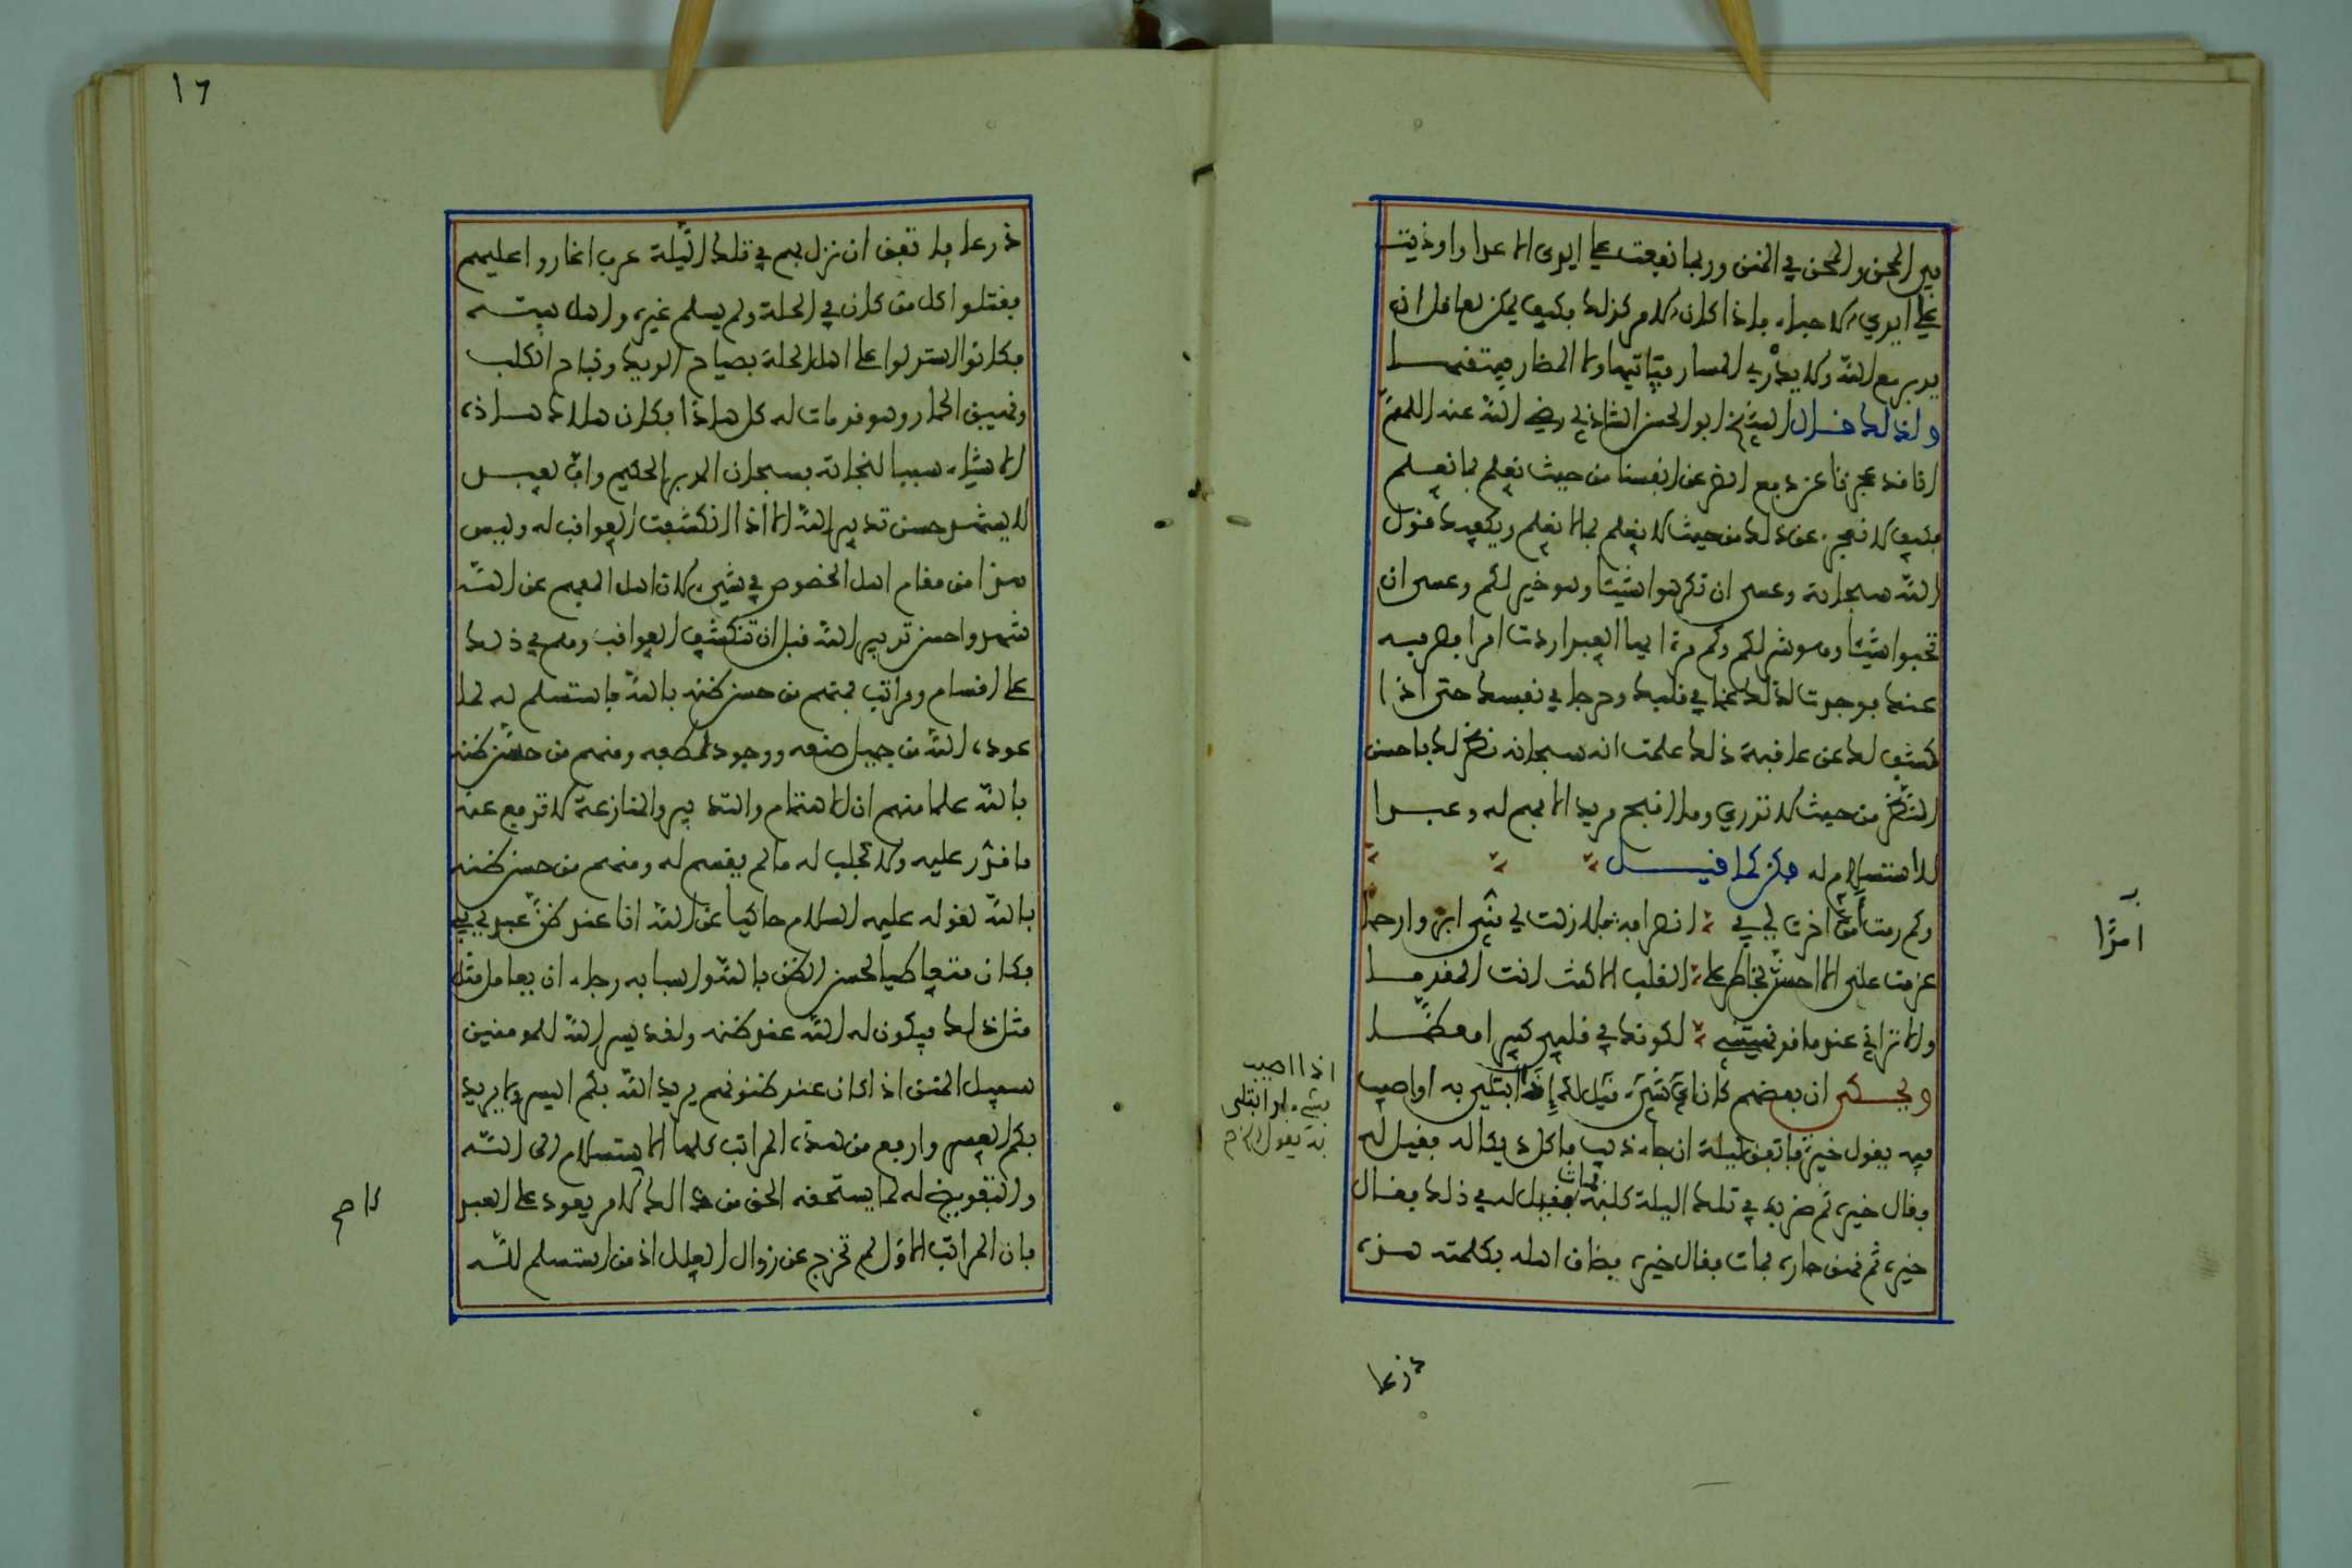 فى المحن والمحن في المنن وربما نفعت على ايدى الاعداء واوذيت
على ايدي الاحباء فاذا كان الامر كذلك فكيف يمكن لعاقل ان
يدبر مع الله ولا يدري المسار فياتيها ولا المضار فيتقيها
ولذلك قال الشيخ ابو الحسن الشاذلي رضي الله عنه اللهم
انا قد عجزنا عن دفع الضر عن انفسنا من حيث نعلم بما نعلم
فكيف لا نعجز عن ذلك من حيث لا نعلم بما لا نعلم ويكفيك قول
الله سبحانه وعسى ان تكرهوا شيئا وهو خير لكم وعسى ان
تحبوا شيئا وهو شر لكم وكم مرة ايها العبد اردت امرا فصرفه
عنك فوجدت لذلك غما في قلبك وحرجا في نفسك حتى اذا
كشف لك عن عاقبة ذلك علمت انه سبحانه نظر لك باحسن
النظر من حيث لا تدري وما اقبح مريدا لا فهم له وعبدا
لا استسلام له فكن كما قيل
وكم رمت امرا خرت لي في انصرافه فلا زلت لي مني ابر وارحما
عزمت على الا احس بخاطر على القلب الا كنت انت المقدما
والا تراني عند ما قد نهيتني لكونك في قلبي كبيرا معظما
ويحكى ان بعضهم كان اي شيء قيل له اذا ابتلي به او اصيب
فيه يقول خيرة فاتفق ليلة ان جاء ذيب فاكل ديكا له فقيل له
فقال خيرة ثم ضرب في تلك الليلة كلبه فمات فقيل له في ذلك فقال
خيرة ثم نهق حماره فمات فقال خيرة فضاق اهله بكلمته هذه
ذرعا
امرًا
اذا اصيب
بشيء او ابتلى
به يقول
١٦
ذرعا فاتفق ان نزل بهم في تلك الليلة عرب اغاروا عليهم
فقتلوا كل من كان في الحلة ولم يسلم غيره واهل بيته
فكانوا استدلوا على اهل الحلة بصياح الديك ونباح الكلب
ونهيق الحمار وهو قد مات له كل هذا فكان هلاك هذه
الاشياء سببا لنجاته فسبحان المدبر الحكيم وان العبد
لا يشهد حسن تدبير الله الا اذا انكشفت العواقب له وليس
هذا من مقام اهل الخصوص في شيء لان اهل الفهم عن الله
شهدوا حسن تدبير الله قبل ان تنكشف العواقب وهم في ذلك
على اقسام ومراتب فمنهم من حسن ظنه بالله فاستسلم له لما
عوده الله من جميل صنعه ووجود لطفه ومنهم من حسن ظنه
بالله علما منهم ان الاهتمام والتدبير والمنازعة لا تدفع عنه
ما قدر عليه ولا تجلب له مالم يقسم له ومنهم من حسن ظنه
بالله لقوله عليه السلام حاكيا عن الله انا عند ظن عبدي بي
فكان متعاطيا لحسن الظن بالله واسبابه رجاء ان يعامل بمثل
مثل ذلك فيكون له الله عند ظنه ولقد يسر الله للمومنين
سبيل المنن اذا كان عند ظنونهم يريد الله بكم اليسر ولا يريد
بكم العسر وارفع من هذه المراتب كلها الاستسلام الى الله
والتفويض له لما يستحقه الحق من ذالك لا لامر يعود على العبد
فان المراتب الاول لم تخرج عن زوال العلل اذ من استسلم لله